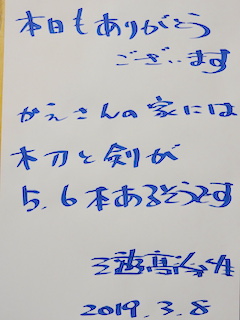 本日もありがとう
ございます
かえさんの家には
木刀と剣が
5、6本あるそうです
2019.3.8